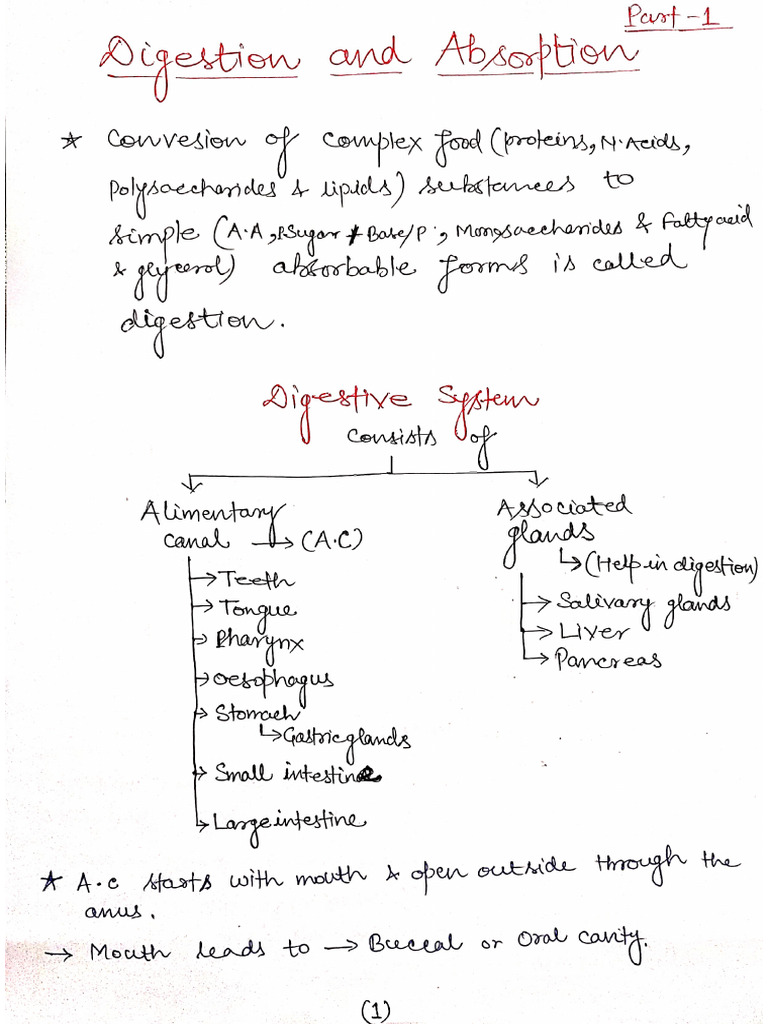 Part-1
Digestion and Absorption
* Convesion of complex food (proteins, N.Acids,
Polysaccharides & lipids) substances to
simple (A.A, PSugar + Base/P., Monosaccharides & Fatty acid
& glycerol) absorbable forms is called
digestion.
Digestive System
Consists of
Alimentary
canal → (A.C)
Associated
glands
↳ (Help in digestion)
→ Teeth
→ Tongue
→ Pharynx
→ Oesophagus
→ Stomach
↳ Gastric glands
→ Small intestine
→ Large intestine
→ Salivary glands
→ Liver
→ Pancreas
* A.C starts with mouth & open outside through the
anus.
→ Mouth leads to → Buccal or Oral cavity.
(1)